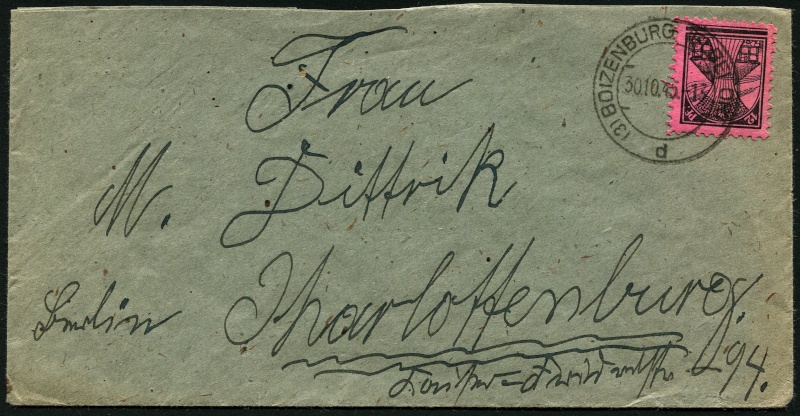 (3) BOIZENBURG
30.10.45
d
Frau
M. Dittrik
Berlin Charlottenburg.
94.